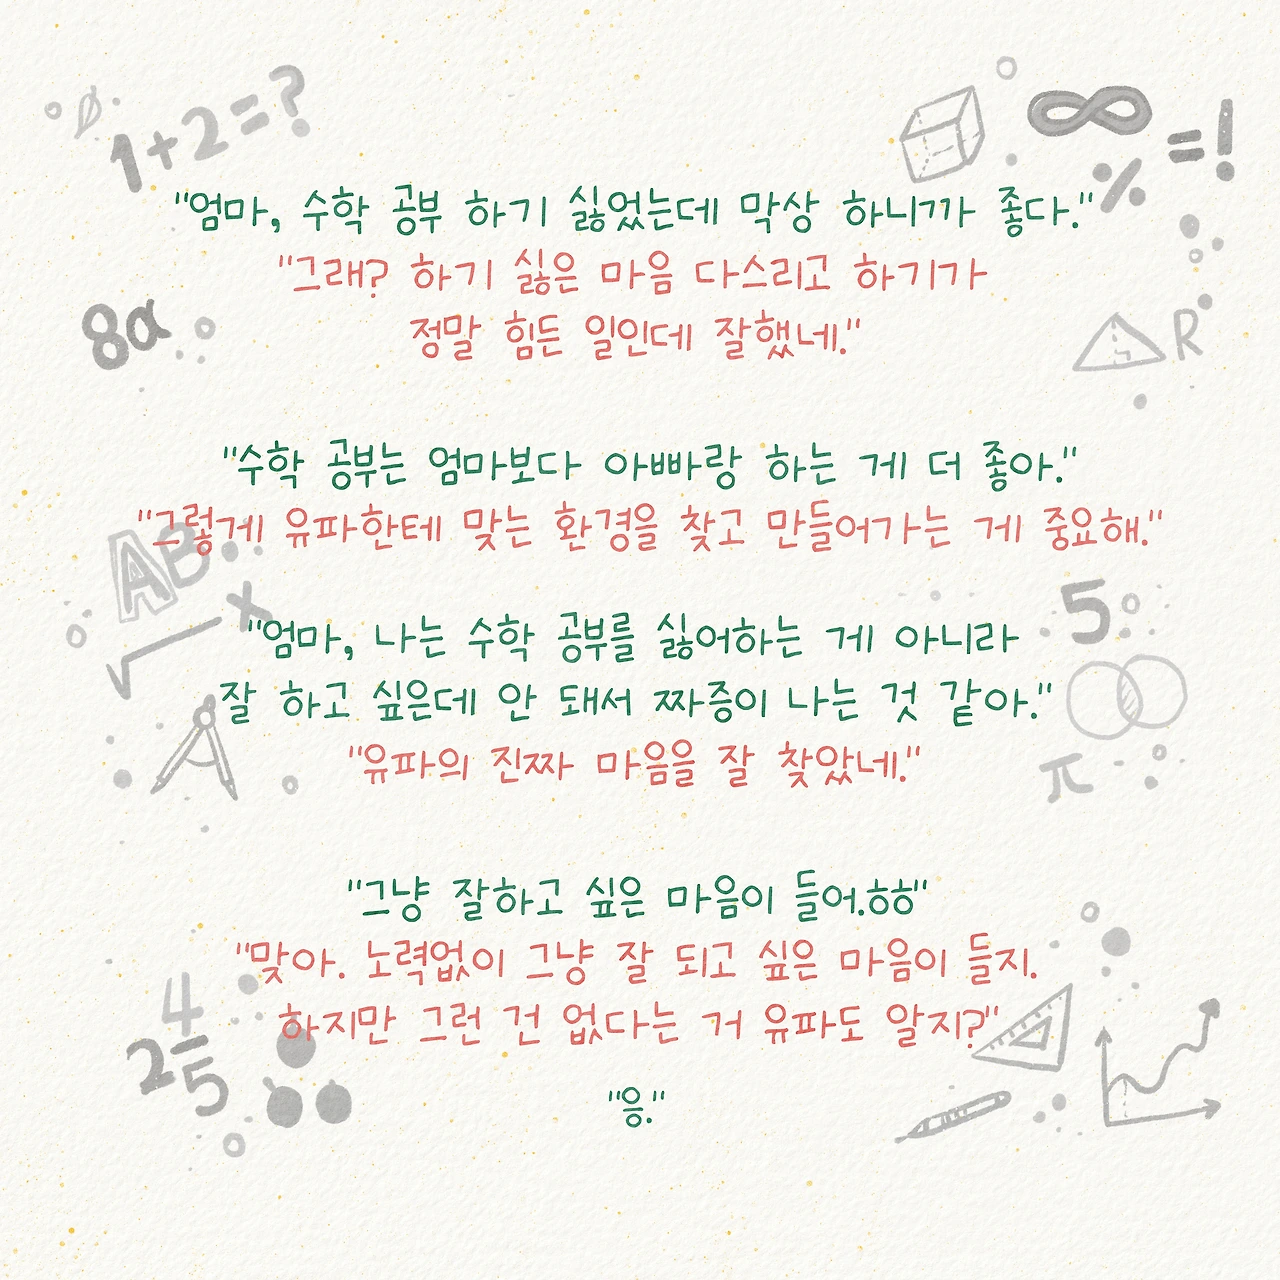 1+2=?
∞
=!
%
"엄마, 수학 공부 하기 싫었는데 막상 하니까 좋다."
"그래? 하기 싫은 마음 다스리고 하기가
정말 힘든 일인데 잘했네."
8α
R
"수학 공부는 엄마보다 아빠랑 하는 게 더 좋아."
"그렇게 유파한테 맞는 환경을 찾고 만들어가는 게 중요해."
AB
x
√
5
"엄마, 나는 수학 공부를 싫어하는 게 아니라
잘 하고 싶은데 안 돼서 짜증이 나는 것 같아."
"유파의 진짜 마음을 잘 찾았네."
π
"그냥 잘하고 싶은 마음이 들어.ㅎㅎ"
"맞아. 노력없이 그냥 잘 되고 싶은 마음이 들지.
하지만 그런 건 없다는 거 유파도 알지?"
2 4/5
"응."